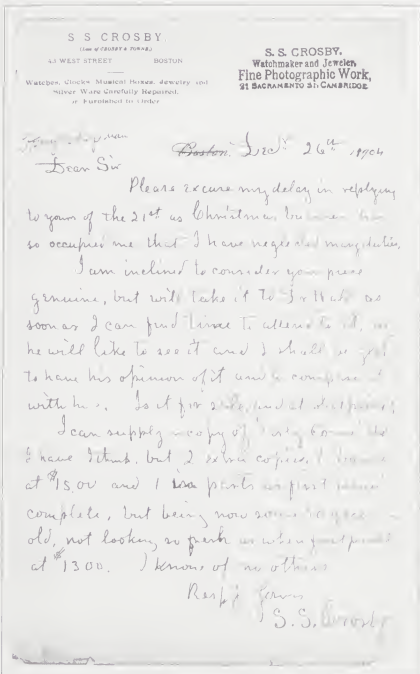 S S CROSBY
(Late of CROSBY & TORREY)
43 WEST STREET BOSTON
Watches, Clocks Musical Boxes, Jewelry and
Silver Ware Carefully Repaired,
or Furnished to Order
S. S. CROSBY.
Watchmaker and Jeweler,
Fine Photographic Work,
21 SACRAMENTO St. CAMBRIDGE
Boston, Dec. 26th 1904
Dear Sir
Please excuse my delay in replying
to yours of the 21st as Christmas business has
so occupied me that I have neglected many duties.
I am inclined to consider your piece
genuine, but will take it to as
soon as I can find time to attend to it, as
he will like to see it and I shall be glad
to have his opinion of it and compare it
with his. Is it for sale, and at what price?
I can supply a copy of
I have I think but 2 extra copies, 1
at $15.00 and 1 in parts as first
complete, but being now some years
old, not looking so fresh as when
at $13.00. I know of no others
Resp'y Yours
S. S. Crosby